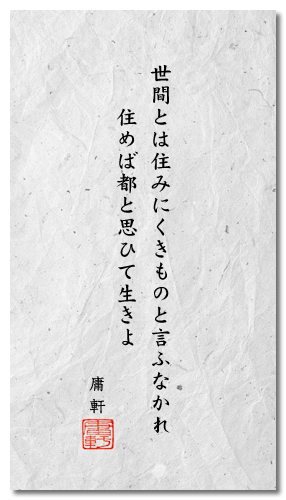 世間とは住みにくきものと言ふなかれ
住めば都と思ひて生きよ
庸軒
庸軒